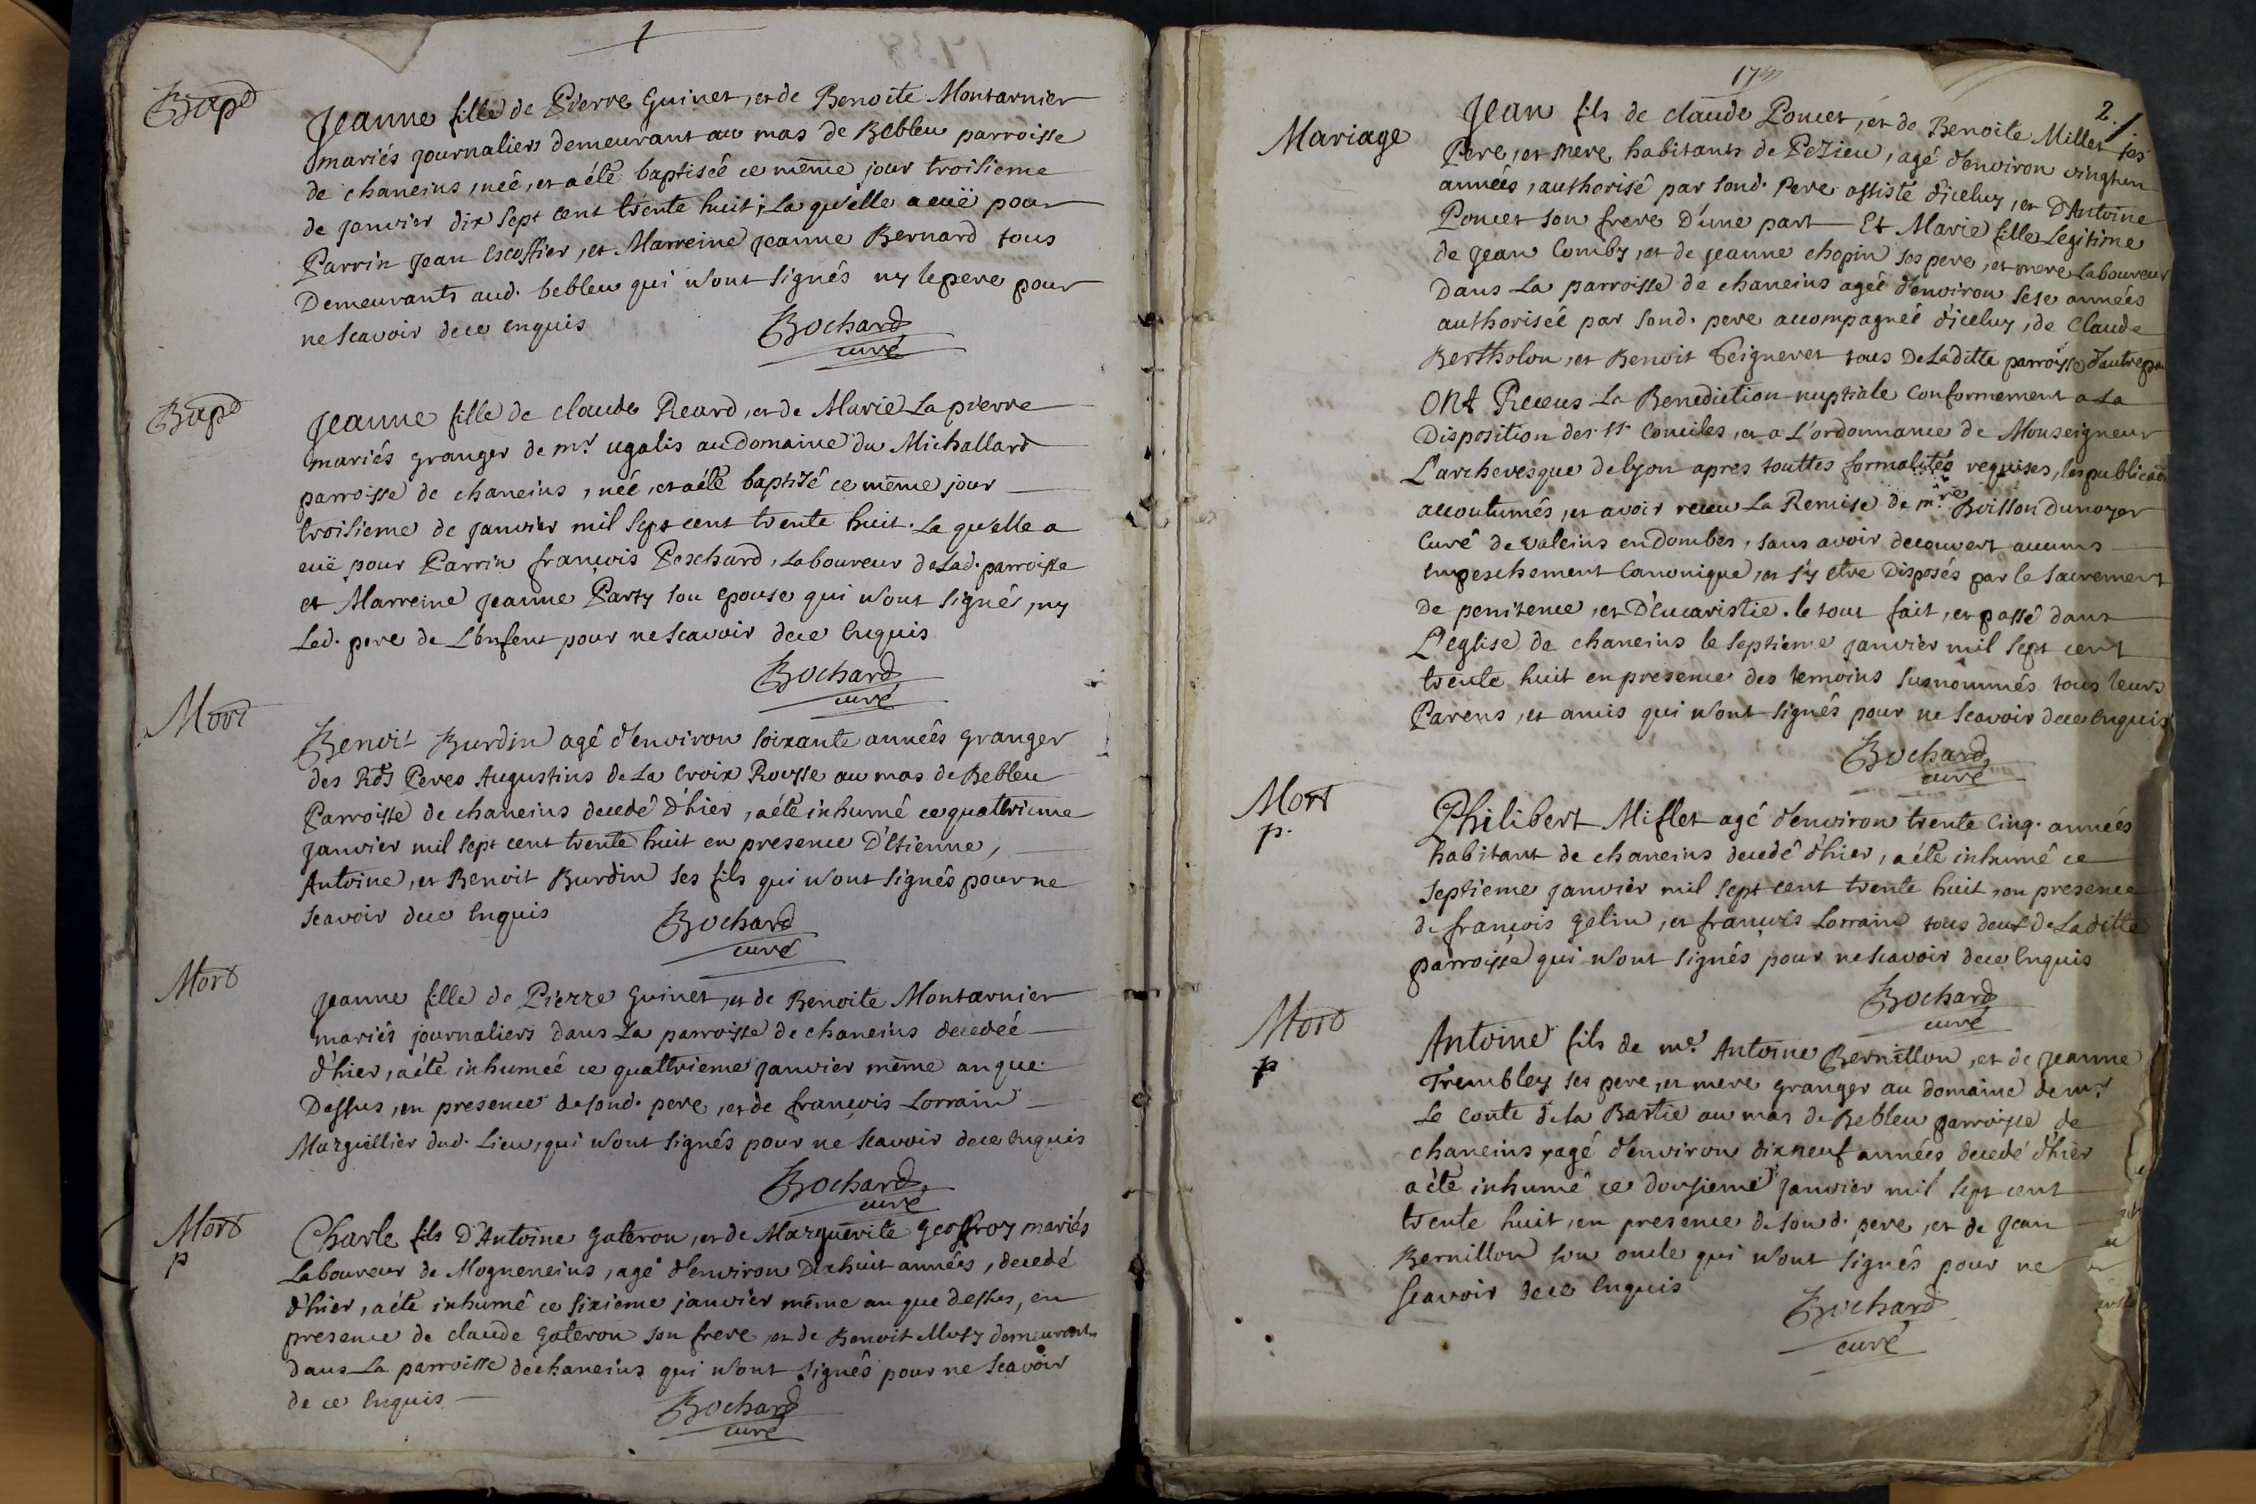 1
Bapt
Jeanne fille de Pierre Guinet, et de Benoite Montarnier
mariés journaliers demeurant au mas de Bebleu parroisse
de chaneins, neé, et a été baptiseé ce même jour troisieme
de janvier dix sept cent trente huit; La qu'elle a euë pour
Parrin Jean Escoffier, et Marreine Jeanne Bernard tous
Demeurants aud. bebleu qui n'ont signés ny le pere pour
ne scavoir de ce enquis
Bochard
curé
Bapt
Jeanne fille de claude Reard, et de Marie La pierre
mariés granger de mr. ugalis au domaine du Michallard
parroisse de chaneins, neé, et a été baptizé ce même jour
troisieme de janvier mil sept cent trente huit. La qu'elle a
euë pour Parrin françois Peschard, Laboureur de Lad. parroisse
et Marreine Jeanne Party son epouse qui n'ont signés, ny
Led. pere de L'enfent pour ne scavoir de ce enquis
Bochard
curé
Mort
Benoit Burdin agé d'environ soixante années granger
des Rds Peres Augustins de La Croix Rousse au mas de Bebleu
Parroisse de chaneins decedé d'hier, a été inhumé ce quattrieme
janvier mil sept cent trente huit en presence D'Etienne,
Antoine, et Benoit Burdin ses fils qui n'ont signés pour ne
scavoir de ce enquis
Bochard
curé
Mort
Jeanne fille de Pierre Guinet, et de Benoite Montarnier
mariés journaliers dans La parroisse de chaneins decedeé
d'hier, a été inhumeé ce quattrieme janvier même an que
Dessus, en presence de sond. pere, et de françois Lorrain
Marguillier dud. Lieu, qui n'ont signés pour ne scavoir de ce enquis
Bochard
curé
Mort
p
Charle fils D'Antoine Gateron, et de Marguerite Geoffroy mariés
Laboureur de Mogneneins, agé d'environ Dixhuit années, decedé
d'hier, a été inhumé ce sixieme janvier même an que dessus, en
presence de claude Gateron son frere et de Benoit Muty demeurants
dans La parroisse de chaneins qui n'ont signés pour ne scavoir
de ce enquis
Bochard
curé
2
Mariage
Jean fils de claude Poncet, et de Benoite Millet ses
Pere, et mere habitants de Pezieu, agé d'environ vingt un
années, authorisé par sond. Pere assisté d'iceluy, et D'Antoine
Poncet son frere D'une part Et Marie fille Legitime
de Jean Comby, et de Jeanne chopin ses pere, et mere Laboureur
Dans La parroisse de chaneins ageé d'environ sese années
authoriseé par sond. pere accompagneé d'iceluy, de Claude
Bertholon, et Benoit Teigneret tous De Laditte parroisse d'autre part
ONt Receus La Benediction nuptiale Conformement a La
Disposition des Sts Conciles, et a L'ordonnance de Monseigneur
L'archevesque de Lyon apres touttes formalités requises, les publicaons
accoutumés, et avoir receu La Remise de mre. Boisson dunoyer
Curé de valeins en Dombes, sans avoir decouvert aucuns
empeschement Canonique, et s'y etre Disposés par le sacrement
de penitence, et D'Eucaristie. le tout fait, et passé dans
L'eglise de chaneins le septieme janvier mil sept cent
trente huit en presence des temoins susnommés tous leurs
Parens, et amis qui n'ont signés pour ne scavoir de ce enquis
Bochard
curé
Mort
p.
Philibert Miflet agé d'environ trente Cinq. années
habitant de chaneins decedé d'hier, a été inhumé ce
septieme janvier mil sept cent trente huit, en presence
de françois Gelin, et françois Lorrain tous deux de Laditte
parroisse qui n'ont signés pour ne scavoir de ce enquis
Bochard
curé
Mort
p
Antoine fils de me. Antoine Bernillon, et de Jeanne
Trembley ses pere, et mere granger au domaine de mr
Le Conte de La Bastie au mas de Bebleu parroisse de
chaneins, agé d'environ dixneuf années decedé d'hier
a été inhumé ce dousieme janvier mil sept cent
trente huit, en presence de sond. pere, et de Jean
Bernillon son oncle qui n'ont signés pour ne
scavoir de ce enquis
Bochard
curé